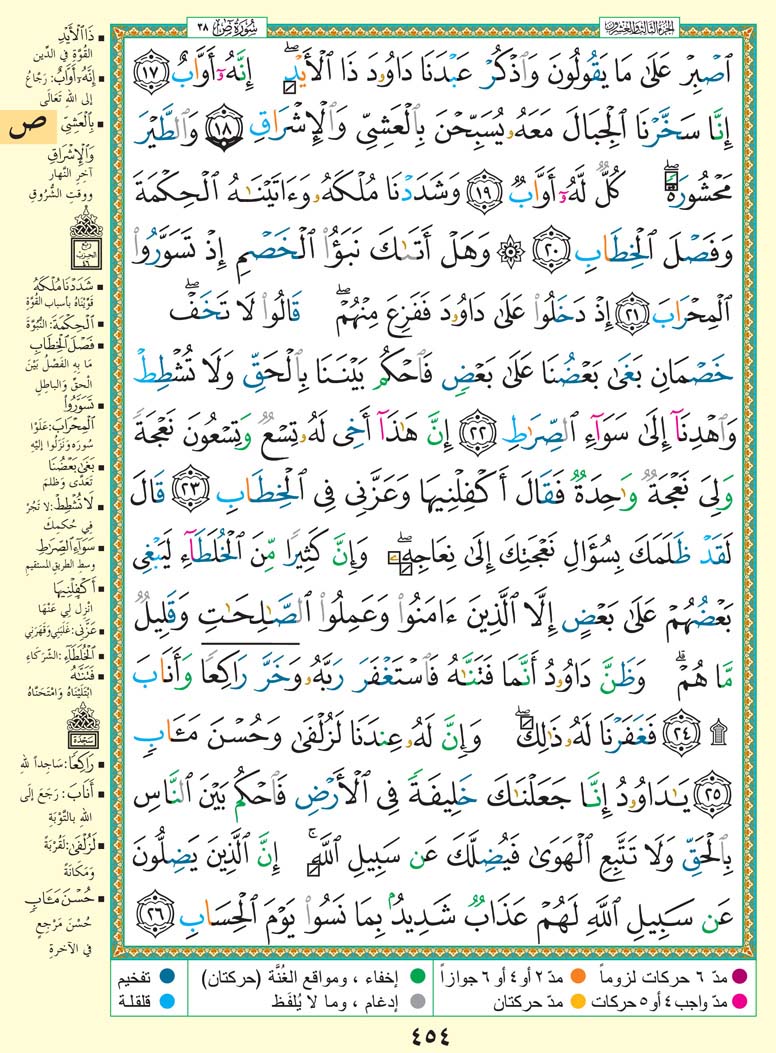 الجزء الثالث والعشرون
سُورَةُ صٓ ٣٨
ٱصۡبِرۡ عَلَىٰ مَا يَقُولُونَ وَٱذۡكُرۡ عَبۡدَنَا دَاوُۥدَ ذَا ٱلۡأَيۡدِۖ إِنَّهُۥٓ أَوَّابٌ ١٧
إِنَّا سَخَّرۡنَا ٱلۡجِبَالَ مَعَهُۥ يُسَبِّحۡنَ بِٱلۡعَشِيِّ وَٱلۡإِشۡرَاقِ ١٨ وَٱلطَّيۡرَ
مَحۡشُورَةٗۖ كُلّٞ لَّهُۥٓ أَوَّابٞ ١٩ وَشَدَدۡنَا مُلۡكَهُۥ وَءَاتَيۡنَٰهُ ٱلۡحِكۡمَةَ
وَفَصۡلَ ٱلۡخِطَابِ ٢٠ ۞ وَهَلۡ أَتَىٰكَ نَبَؤُاْ ٱلۡخَصۡمِ إِذۡ تَسَوَّرُواْ
ٱلۡمِحۡرَابَ ٢١ إِذۡ دَخَلُواْ عَلَىٰ دَاوُۥدَ فَفَزِعَ مِنۡهُمۡۖ قَالُواْ لَا تَخَفۡۖ
خَصۡمَانِ بَغَىٰ بَعۡضُنَا عَلَىٰ بَعۡضٖ فَٱحۡكُم بَيۡنَنَا بِٱلۡحَقِّ وَلَا تُشۡطِطۡ
وَٱهۡدِنَآ إِلَىٰ سَوَآءِ ٱلصِّرَٰطِ ٢٢ إِنَّ هَٰذَآ أَخِي لَهُۥ تِسۡعٞ وَتِسۡعُونَ نَعۡجَةٗ
وَلِيَ نَعۡجَةٞ وَٰحِدَةٞ فَقَالَ أَكۡفِلۡنِيهَا وَعَزَّنِي فِي ٱلۡخِطَابِ ٢٣ قَالَ
لَقَدۡ ظَلَمَكَ بِسُؤَالِ نَعۡجَتِكَ إِلَىٰ نِعَاجِهِۦۖ وَإِنَّ كَثِيرٗا مِّنَ ٱلۡخُلَطَآءِ لَيَبۡغِي
بَعۡضُهُمۡ عَلَىٰ بَعۡضٍ إِلَّا ٱلَّذِينَ ءَامَنُواْ وَعَمِلُواْ ٱلصَّٰلِحَٰتِ وَقَلِيلٞ
مَّا هُمۡۗ وَظَنَّ دَاوُۥدُ أَنَّمَا فَتَنَّٰهُ فَٱسۡتَغۡفَرَ رَبَّهُۥ وَخَرَّۤ رَاكِعٗاۤ وَأَنَابَ
۩ ٢٤ فَغَفَرۡنَا لَهُۥ ذَٰلِكَۖ وَإِنَّ لَهُۥ عِندَنَا لَزُلۡفَىٰ وَحُسۡنَ مَـَٔابٖ
٢٥ يَٰدَاوُۥدُ إِنَّا جَعَلۡنَٰكَ خَلِيفَةٗ فِي ٱلۡأَرۡضِ فَٱحۡكُم بَيۡنَ ٱلنَّاسِ
بِٱلۡحَقِّ وَلَا تَتَّبِعِ ٱلۡهَوَىٰ فَيُضِلَّكَ عَن سَبِيلِ ٱللَّهِۚ إِنَّ ٱلَّذِينَ يَضِلُّونَ
عَن سَبِيلِ ٱللَّهِ لَهُمۡ عَذَابٞ شَدِيدُۢ بِمَا نَسُواْ يَوۡمَ ٱلۡحِسَابِ ٢٦
ذَا ٱلۡأَيۡدِ:
القُوَّةِ في الدِّين
إِنَّهُۥٓ أَوَّابٌ: رَجَّاعٌ
إلى اللهِ تَعَالَى
بِٱلۡعَشِيِّ
وَٱلۡإِشۡرَاقِ
آخِرِ النَّهارِ
ووقتِ الشُّروقِ
ص
ربع
الحزب
٤٦
شَدَدۡنَا مُلۡكَهُۥ
قَوَّيْنَاهُ بأسبابِ القُوَّةِ
ٱلۡحِكۡمَةَ: النُّبُوَّةَ
فَصۡلَ ٱلۡخِطَابِ
مَا بِهِ الفَصْلُ بَيْنَ
الحَقِّ والباطِلِ
تَسَوَّرُواْ
ٱلۡمِحۡرَابَ: عَلَوْا
سُورَه ونَزَلُوا إليْهِ
بَغَىٰ بَعۡضُنَا
تَعَدَّى وَظَلَمَ
لَا تُشۡطِطۡ: لا تَجُرْ
في حُكمِكَ
سَوَآءِ ٱلصِّرَٰطِ
وسطِ الطريقِ المستقيمِ
أَكۡفِلۡنِيهَا
انْزِلْ لي عَنْهَا
عَزَّنِي: غَلَبَنِي وَقَهَرَنِي
ٱلۡخُلَطَآءِ: الشُّرَكاءِ
فَتَنَّٰهُ
ابْتَلَيْنَاهُ وَامْتَحَنَّاهُ
سَجْدَة
رَاكِعٗا: سَاجِداً للهِ
أَنَابَ: رَجَعَ إلَى
اللهِ بالتَّوْبَةِ
لَزُلۡفَىٰ: لَقُرْبَةً
وَمَكَانَةً
حُسۡنَ مَـَٔابٖ
حُسْنَ مَرْجِعٍ
في الآخرةِ
مدّ ٦ حركات لزوماً
مدّ ٢ أو ٤ أو ٦ جوازاً
إخفاء ، ومواقع الغُنَّة (حركتان)
تفخيم
مدّ واجب ٤ أو ٥ حركات
مدّ حركتان
إدغام ، وما لا يُلفَظ
قلقلة
٤٥٤